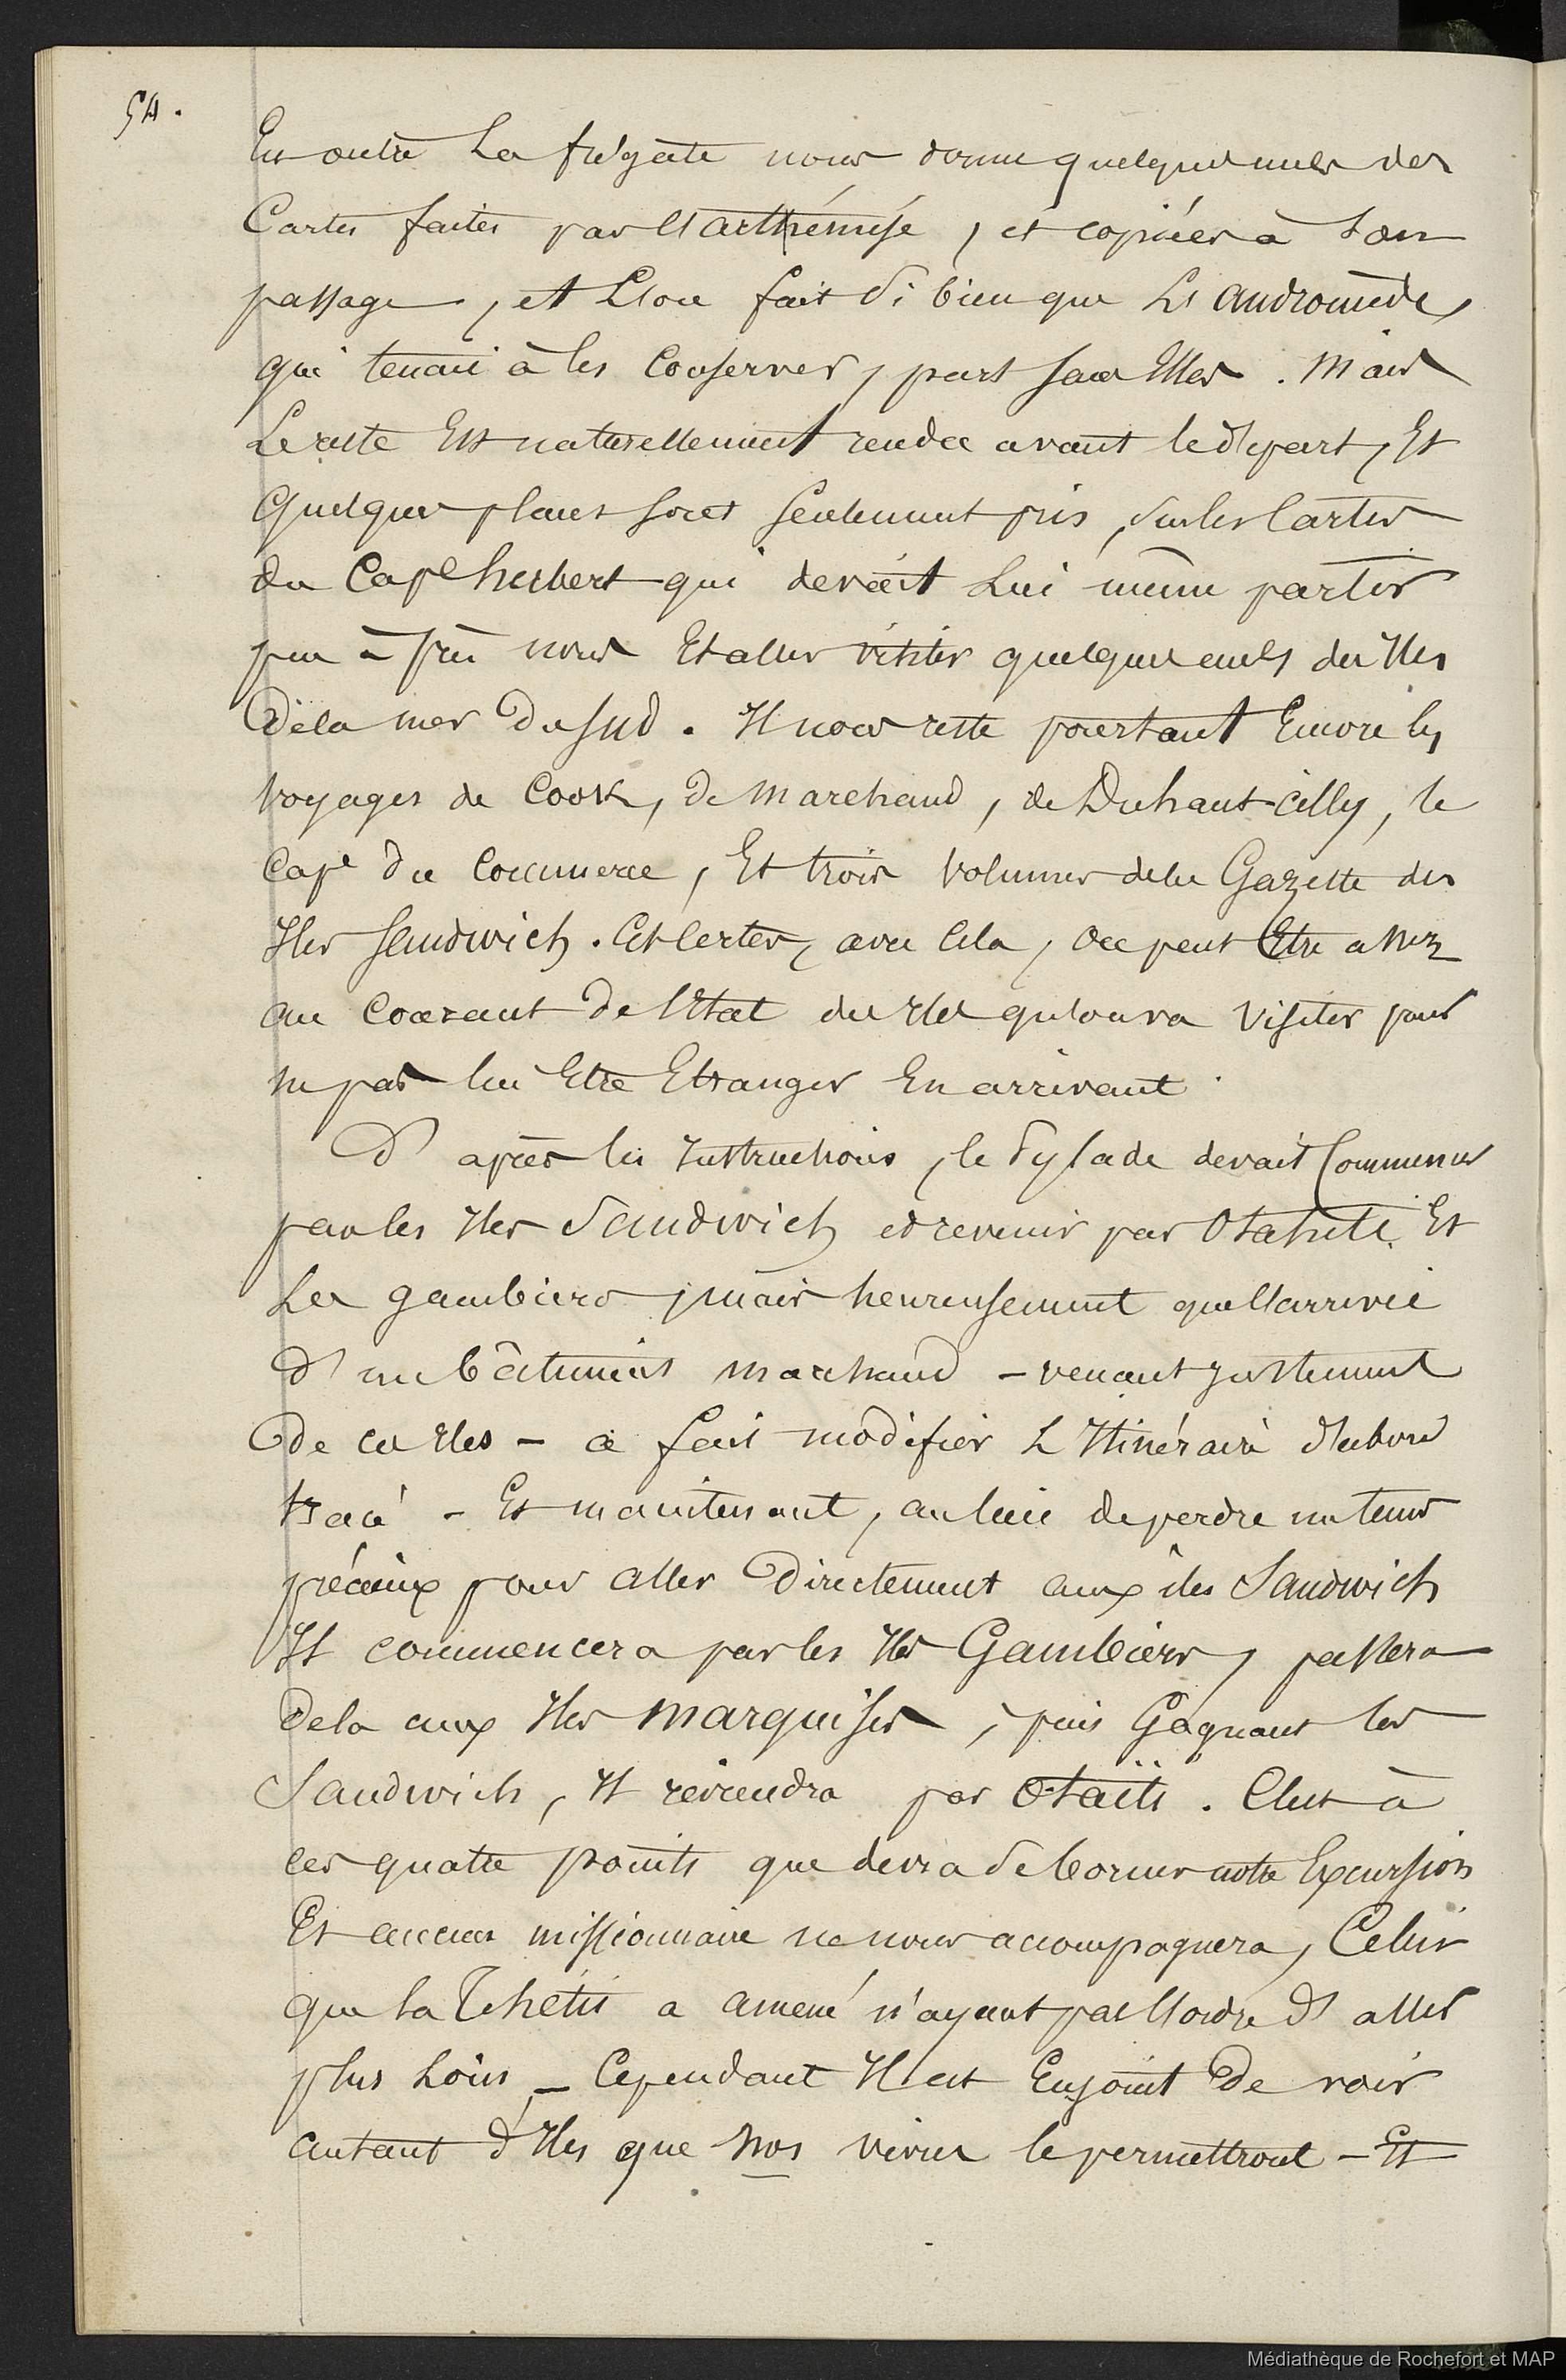 54.
En outre La frégate nous donne quelques unes des
Cartes faites par l'arthémise, et copiées à son
passage, et l'on fait si bien que L'andromède,
qui tenait à les conserver, part sans Elles. Mais
Le reste Est naturellement rendu avant le départ, Et
quelques plans sont seulement pris, sur les Cartes
du Cap.e herbert qui devait Lui même partir
peu après nous Et aller visiter quelques unes des Iles
De la mer Du Sud. Il nous reste pourtant Encore les
Voyages de Cook, de Marchand, de Duhaut-cilly, le
Cap.e du Commerce, Et trois volumes de la Gazette des
Iles Sandwich. Et Certes, avec Cela, on peut Etre assez
au Courant De l'Etat des Iles qu'on va visiter pour
ne pas lui Etre Etranger En arrivant.
D'après les Instructions, le Pylade devait Commencer
par les Iles Sandwich et revenir par Otahiti Et
Les gambiers, mais heureusement que l'arrivée
d'un bâtiment marchand - venant justement
De ces Iles - a fait modifier L'Itinéraire d'abord
tracé - Et maintenant, au lieu de perdre un tems
précieux pour aller Directement aux îles Sandwich
Il commencera par les Iles Gambiers, passera
De la aux Iles Marquises, puis Gagnant les
Sandwich, Il reviendra par Otaïti. C'est à
ces quatre points que devra se borner notre Excursion
Et aucun missionnaire ne nous accompagnera, Celui
que la Thétis a amené n'ayant pas l'ordre d'aller
plus Loin, - Cependant Il est Enjoint De voir
autant d'Iles que nos vivres le permettront - Et
Médiathèque de Rochefort et MAP